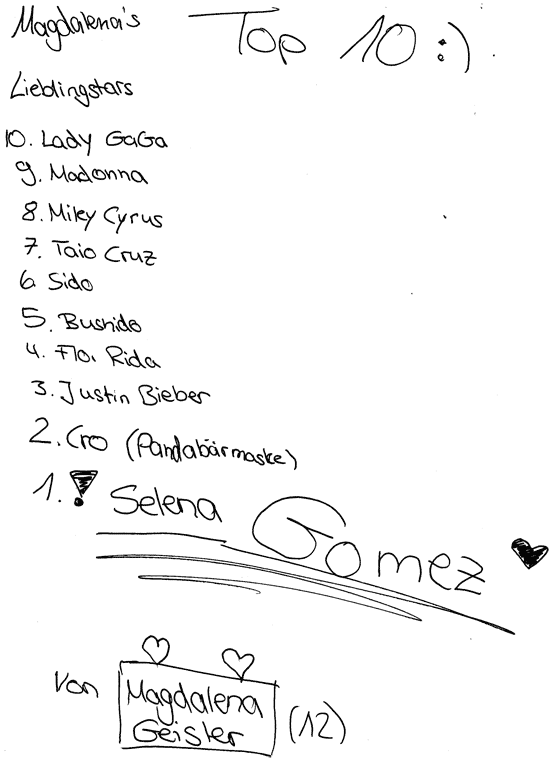 Magdalena's Top 10 :)
Lieblingstars
10. Lady GaGa
9. Madonna
8. Miley Cyrus
7. Taio Cruz
6. Sido
5. Bushido
4. Flo. Rida
3. Justin Bieber
2. Cro (Pandabärmaske)
1. Selena Gomez
von Magdalena
Geister (12)